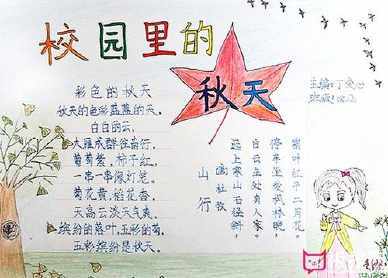 校园里的
秋天
彩色的秋天
秋天的色彩蓝蓝的天,
白白的云,
大雁成群往南行。
葡萄紫,柿子红,
一串一串像灯笼。
菊花黄,稻花香,
天高云淡天气爽,
缤纷的落叶,五彩的菊,
五彩缤纷是秋天。
山行
杜牧
远上寒山石径斜,
白云生处有人家。
停车坐爱枫林晚,
霜叶红于二月花。
主编:丁
班级: